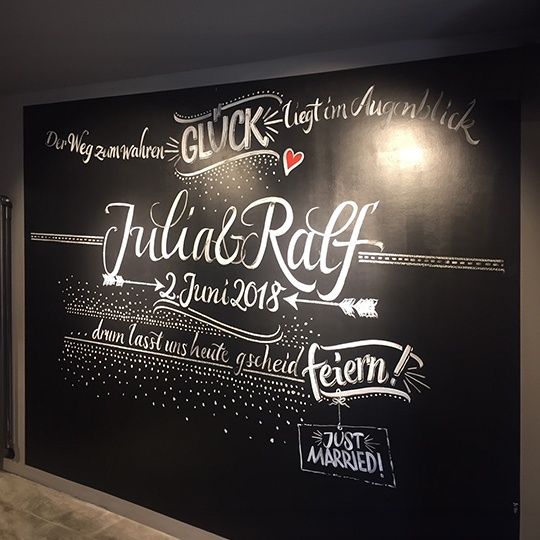 Der Weg zum wahren GLÜCK liegt im Augenblick
Julia & Ralf
2. Juni 2018
drum lasst uns heute gscheid feiern!
JUST
MARRIED!